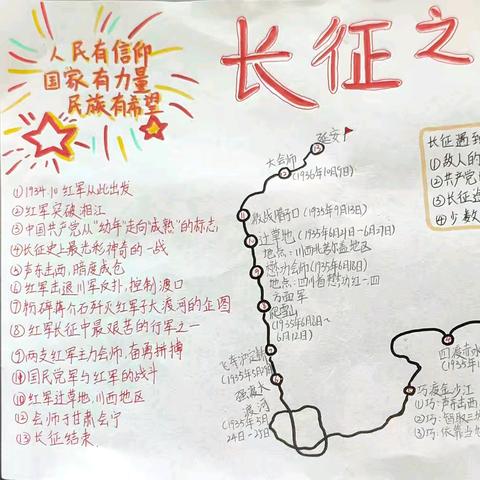 人民有信仰
国家有力量
民族有希望
长征之
①1934.10红军从此出发
②红军突破湘江
③中国共产党从"幼年"走向"成熟"的标志
④长征史上最光彩神奇的一战
⑤声东击西,暗度成仓
⑥红军击退川军反扑,控制渡口
⑦粉碎蒋介石歼灭红军于大渡河的企图
⑧红军长征中最艰苦的行军之一
⑨两支红军主力会师,奋勇拼搏
⑩国民党军与红军的战斗
⑪红军过草地、川西地区
⑫会师于甘肃会宁
⑬长征结束
延安
大会师
(1936年10月9日)
激战腊子口(1935年9月13日)
过草地(1935年6月21日-6月27日)
地点:川西北若尔盖地区
懋功会师(1935年6月18日)
地点:四川省懋功红一、四
方面军
爬雪山
(1935年6月2日~
6月12日)
飞夺泸定桥
(1935年5月29
强渡大
渡河
(1935年5月
24日-25日
四渡赤水
(1935年
巧渡金沙江
①巧:声东击西
②巧:智取三
③巧:依靠当
长征遇到
①敌人的
②共产党
③长征途
④少数